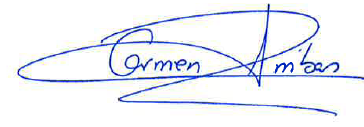 Carmen Ambas